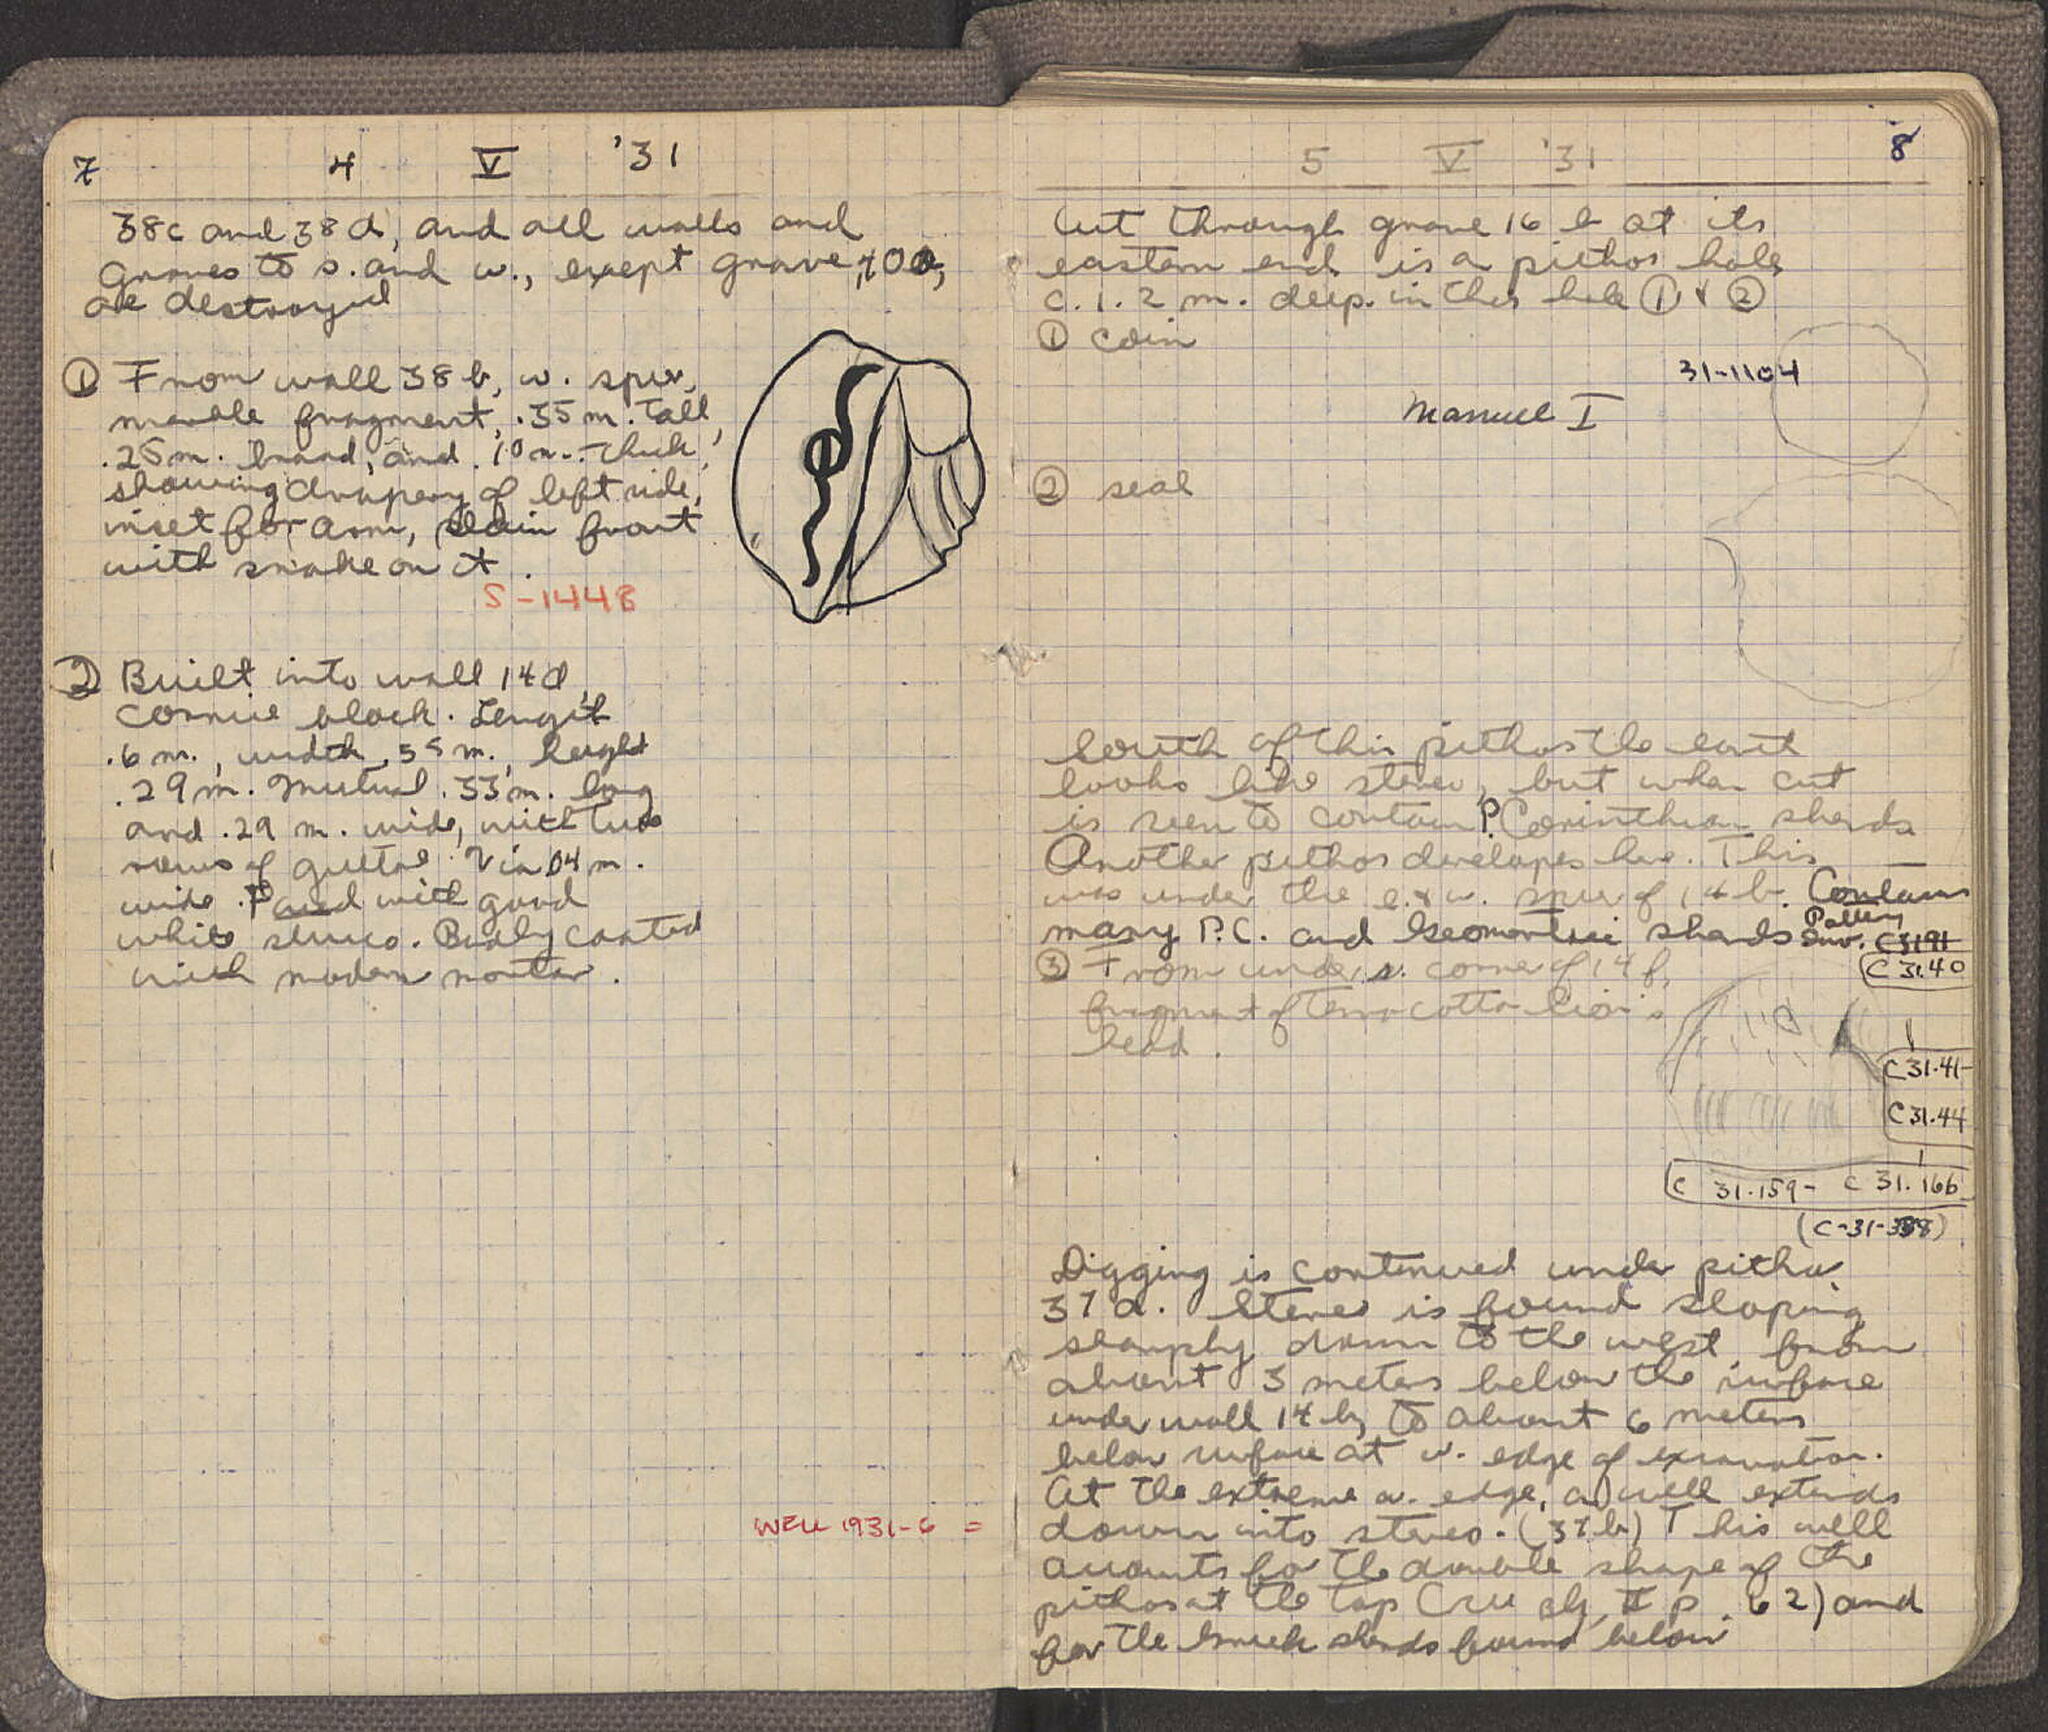 7 4 V '31
38c and 38d, and all walls and
graves to s. and w., except grave
are destroyed
① From wall 38 b, w. spur,
marble fragment, .35 m. tall,
.25 m. broad, and .10 m. thick,
showing drapery of left side,
inset for arm, plain front
with snake on it.
S-1448
② Built into wall 14d,
cornice block. Length
.6 m., width .55 m., height
.29 m. Mutual .33 m. long
and .29 m. wide, with two
rows of guttae. Via .04 m.
wide. with good
white stucco. Badly coated
with modern mortar.
WELL 1931-6 =
5 V '31 8
Cut through grave 16 b at its
eastern end is a pithos hole
c. 1.2 m. deep. in this hole ① & ②
① coin
31-1104
Manuel I
② seal
South of this pithos the earth
looks like stereo, but when cut
is seen to contain P. Corinthian sherds
Another pithos developes here. This
was under the e. & w. spur of 14 b. Contains
many P.C. and Geometric sherds Pottery Inv. C3191
C 31.40
③ From under s. corner of 14 f,
fragment of terra cotta lion's
head.
C 31.41-
C 31.44
C 31.159- C 31.166
Digging is continued under pithos
37 a. Stereo is found sloping
sharply down to the west from
about 3 meters below the surface
under wall 14 b, to about 6 meters
below surface at w. edge of excavation.
At the extreme w. edge, a well extends
down into stereo. (37 b) This well
accounts for the double shape of the
pithos at the top (see II p. 62) and
for the Greek sherds found below